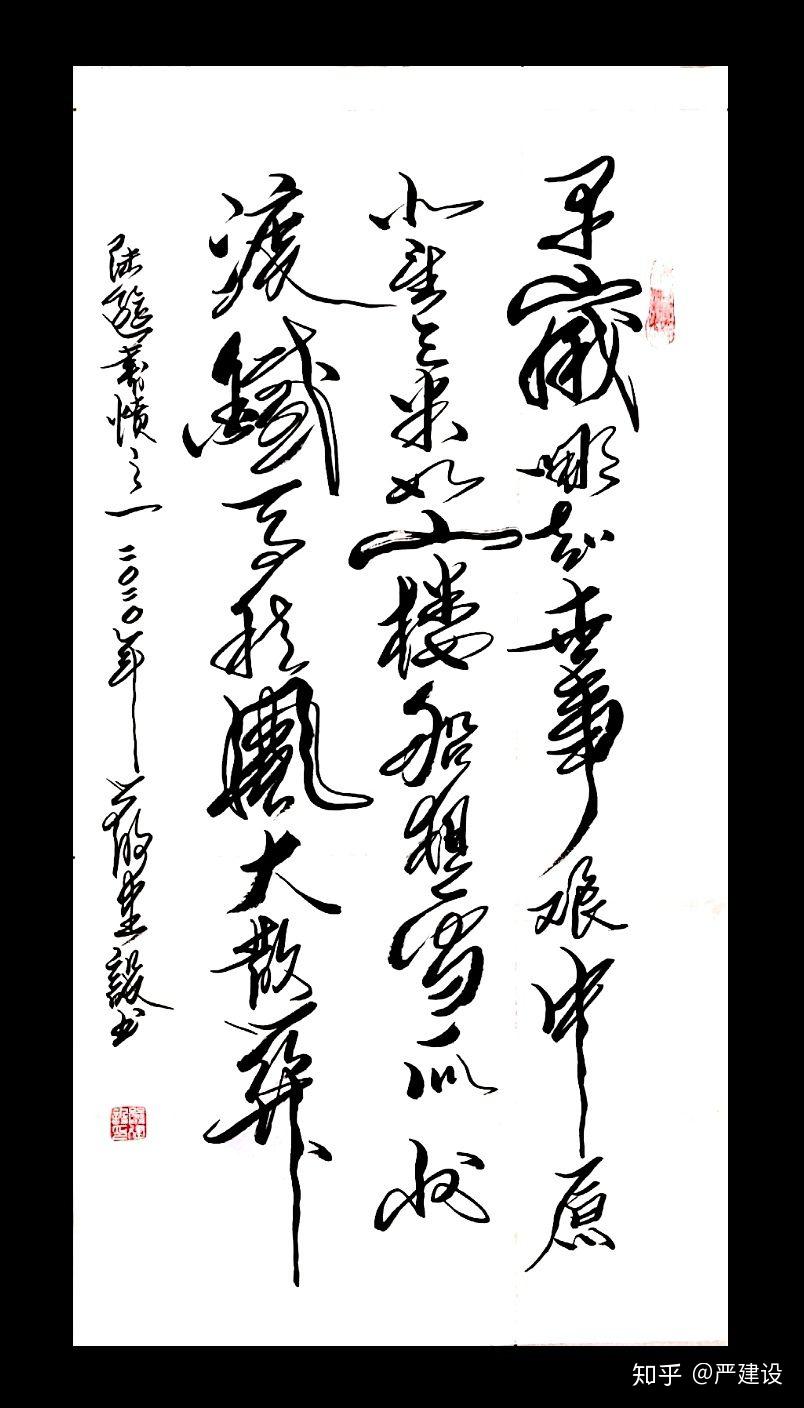 早歲哪知世事艰中原
北望氣如山楼船夜雪瓜洲
渡鐵馬秋風大散關
陆遊書憤之一二〇二〇年嚴建設书
知乎 @严建设